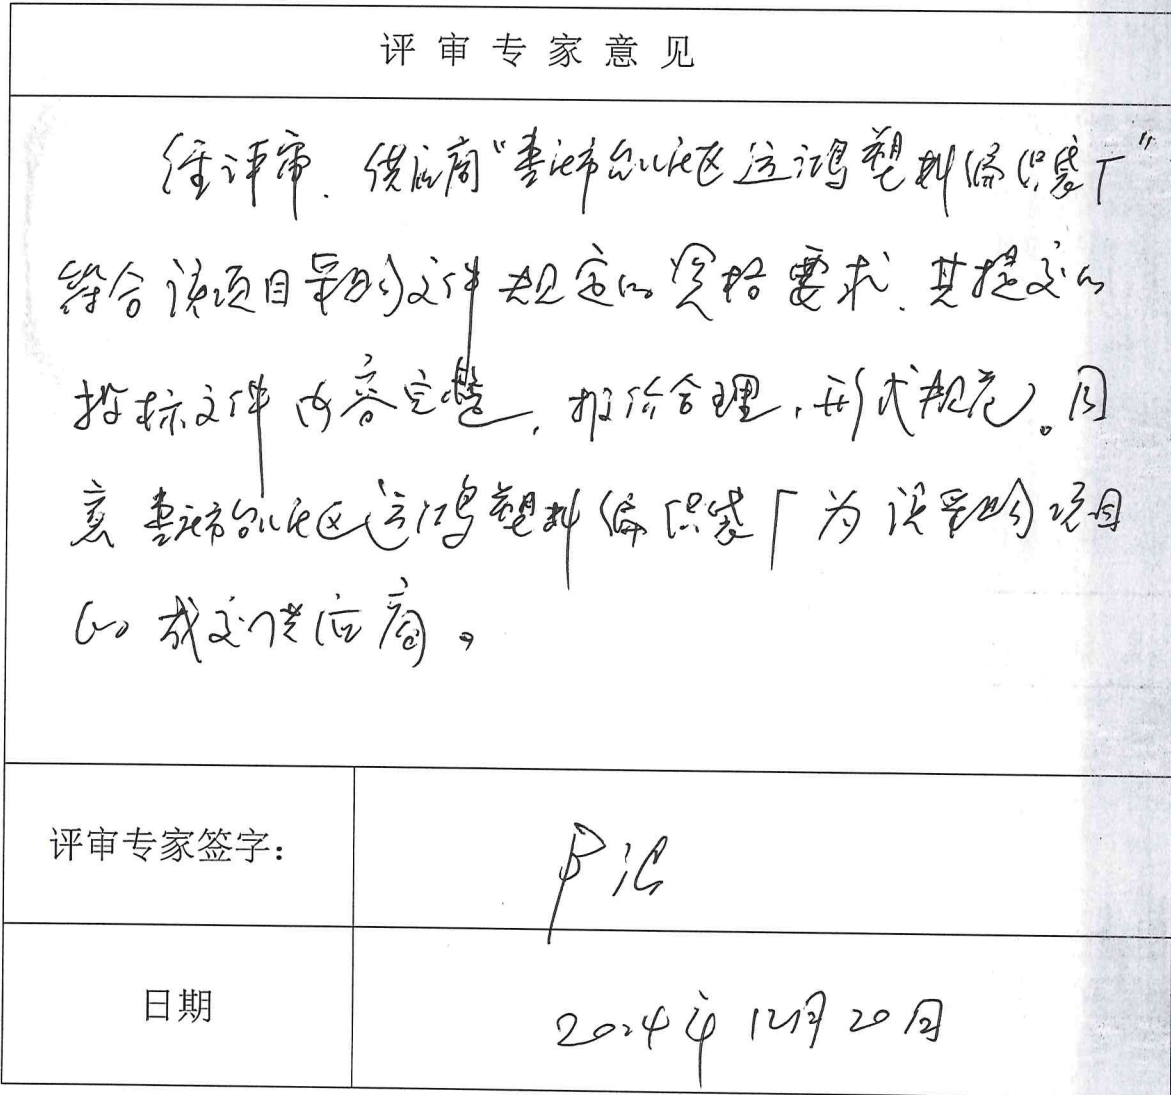 评审专家意见
经评审、供应商"娄底市娄星区运鸿塑料编织袋厂"
符合该项目采购文件规定的资格要求、其提交的
投标文件内容完整、报价合理、形式规范。同
意 运鸿塑料编织袋厂为该采购项目
的成交供应商。
评审专家签字:
日期
2024年12月20日